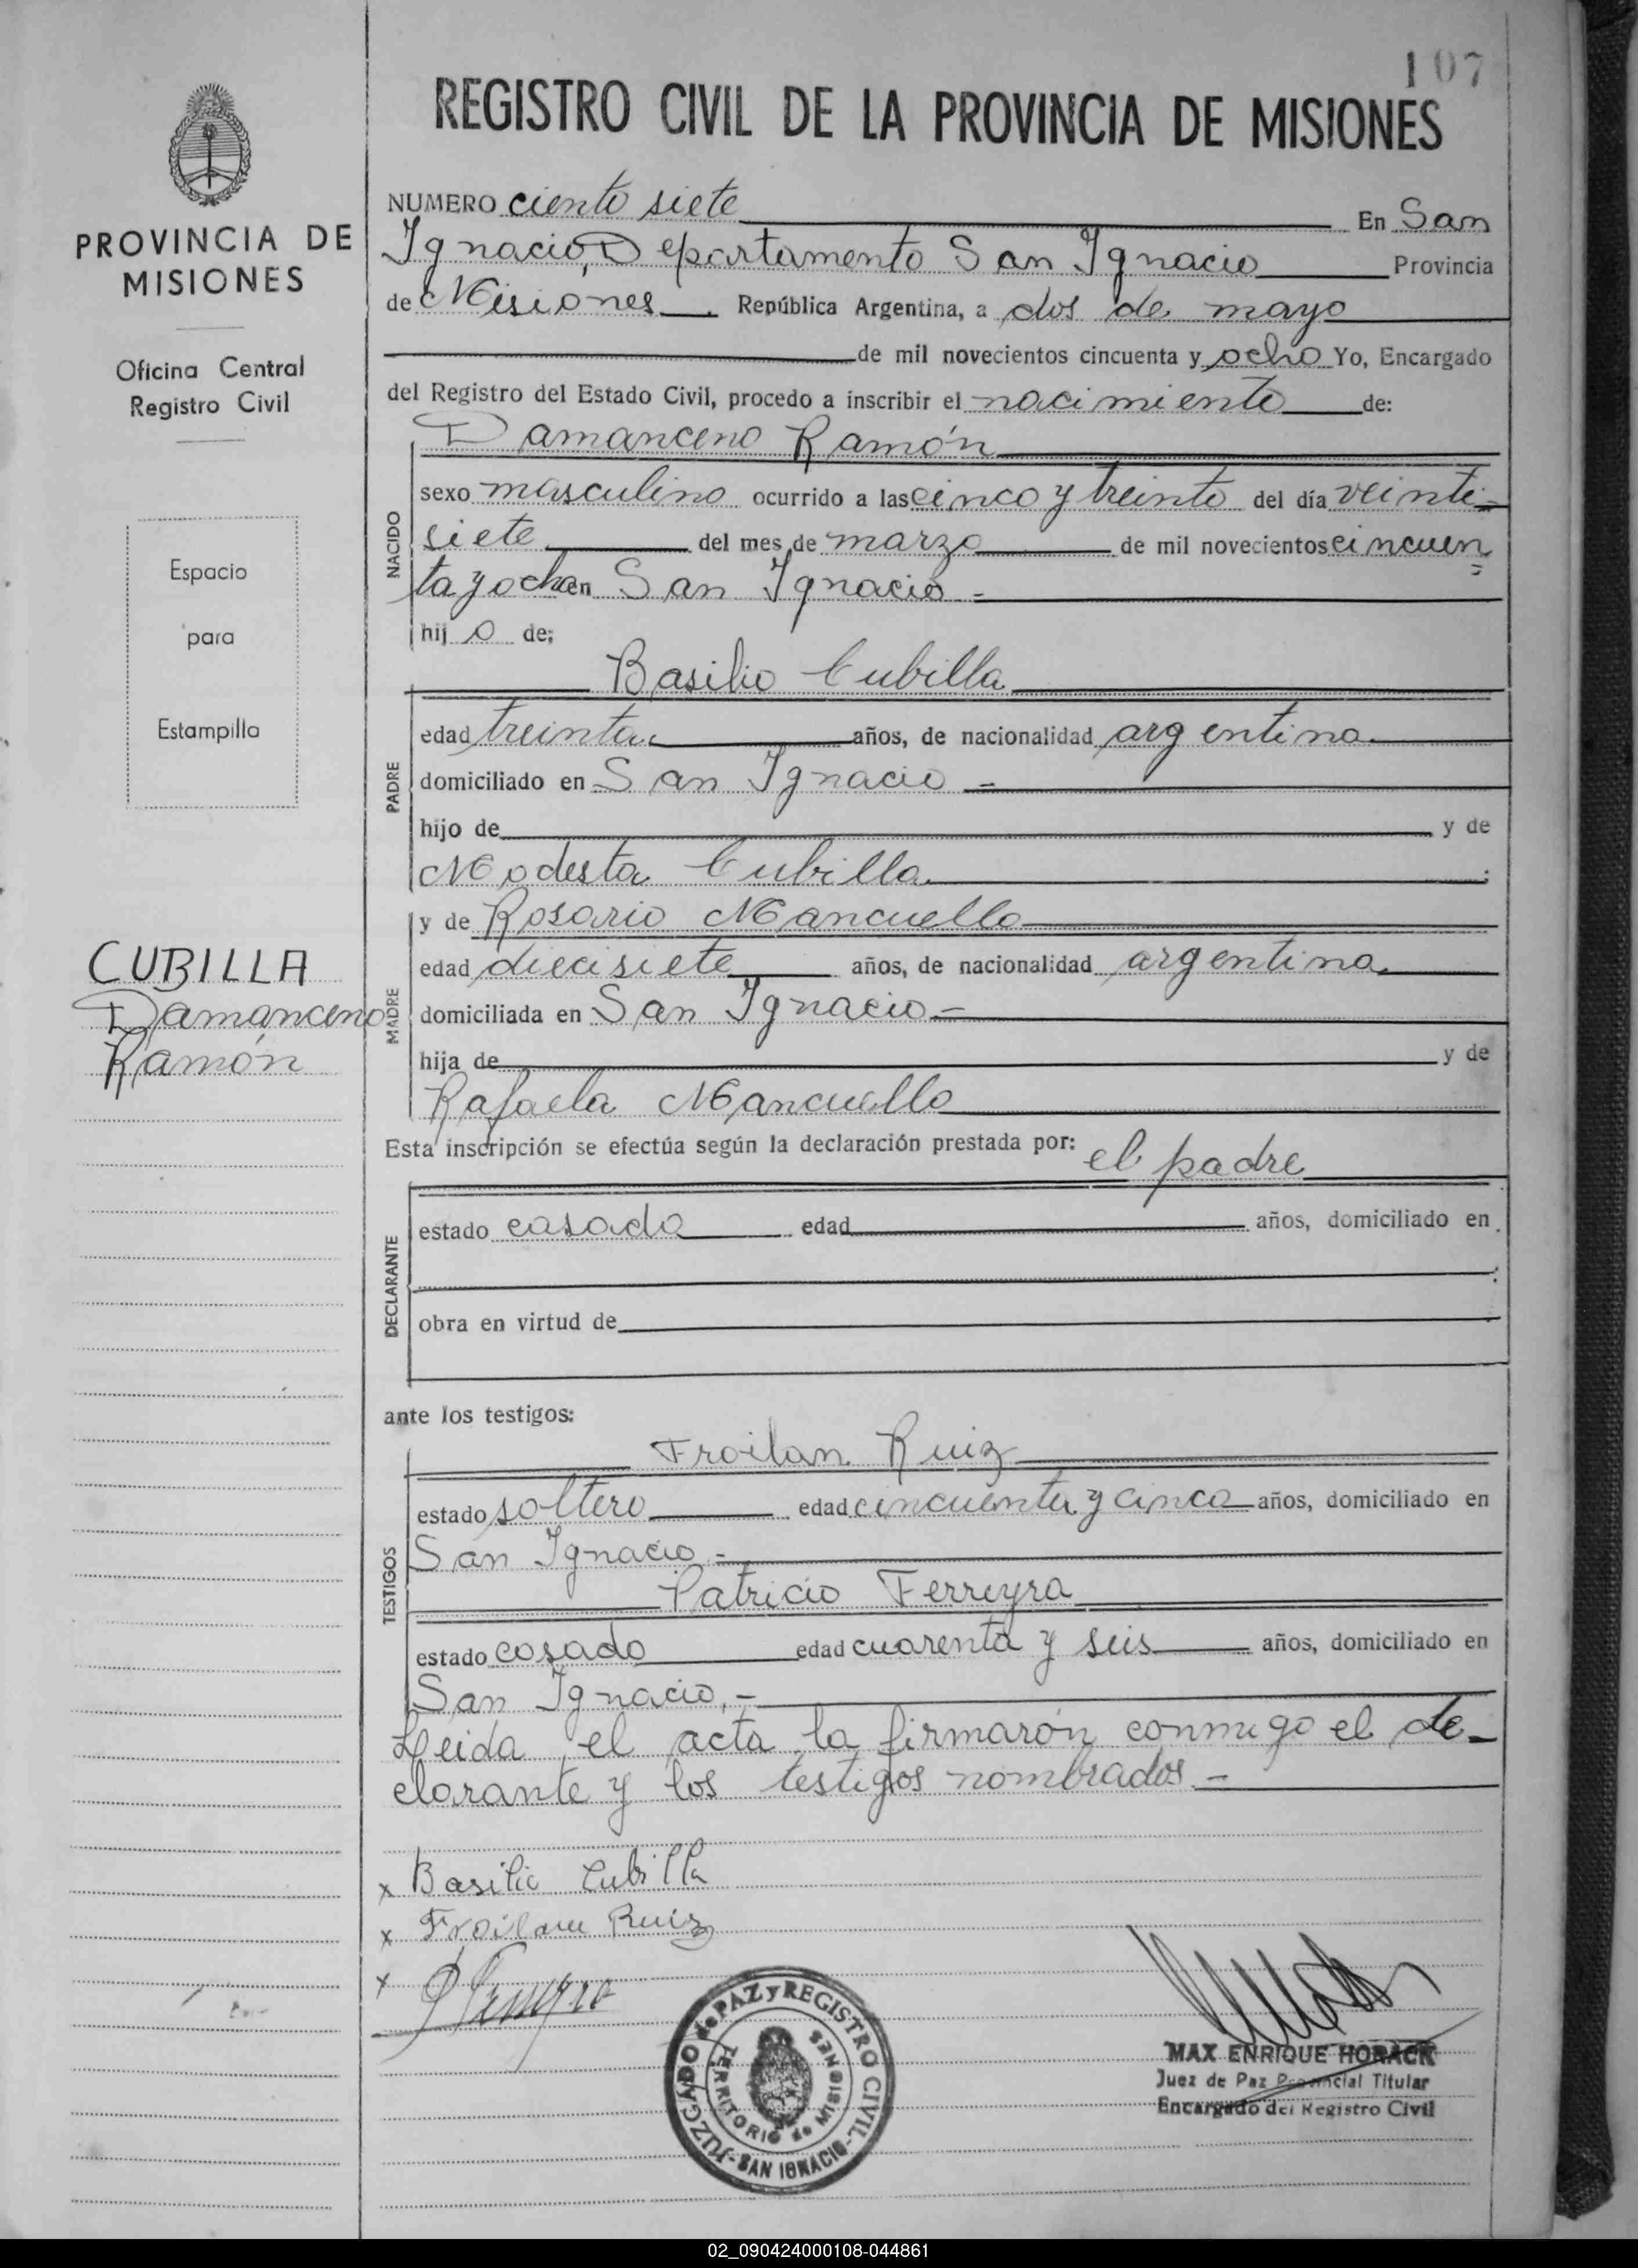 107
REGISTRO CIVIL DE LA PROVINCIA DE MISIONES
PROVINCIA DE
MISIONES
Oficina Central
Registro Civil
Espacio
para
Estampilla
CUBILLA
Damanceno
Ramón
NUMERO ciento siete En San
Ignacio, Departamento San Ignacio Provincia
de Misiones. República Argentina, a dos de mayo
de mil novecientos cincuenta y ocho Yo, Encargado
del Registro del Estado Civil, procedo a inscribir el nacimiento de:
Damanceno Ramón
NACIDO
sexo masculino ocurrido a las cinco y treinta del día veinti-
siete del mes de marzo de mil novecientos cincuen
ta y ocho en San Ignacio -
hijo de:
Basilio Cubilla
PADRE
edad treinta años, de nacionalidad argentina
domiciliado en San Ignacio -
hijo de y de
Modesta Cubilla
MADRE
y de Rosario Mancuello
edad diecisiete años, de nacionalidad argentina
domiciliada en San Ignacio -
hija de y de
Rafaela Mancuello
Esta inscripción se efectúa según la declaración prestada por: el padre
DECLARANTE
estado casado edad años, domiciliado en
obra en virtud de
ante los testigos:
TESTIGOS
Froilan Ruiz
estado soltero edad cincuenta y cinco años, domiciliado en
San Ignacio -
Patricio Ferreyra
estado casado edad cuarenta y seis años, domiciliado en
San Ignacio, -
Leida el acta la firmarón conmigo el de-
clarante y los testigos nombrados -
x Basilio Cubilla
x Froilan Ruiz
x
JUZGADO de PAZ y REGISTRO CIVIL - SAN IGNACIO -
TERRITORIO de MISIONES
MAX ENRIQUE HORACK
Juez de Paz Provincial Titular
Encargado del Registro Civil
02_090424000108-044861